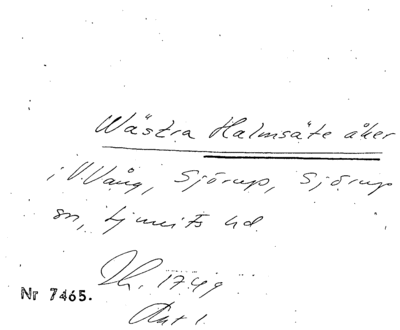 Wästra Halmsäte åker
i V. Vång, Sjörup, Sjörup
sn, Ljunits hd.
Th. 1749
Nr 7465.
Akt 1.